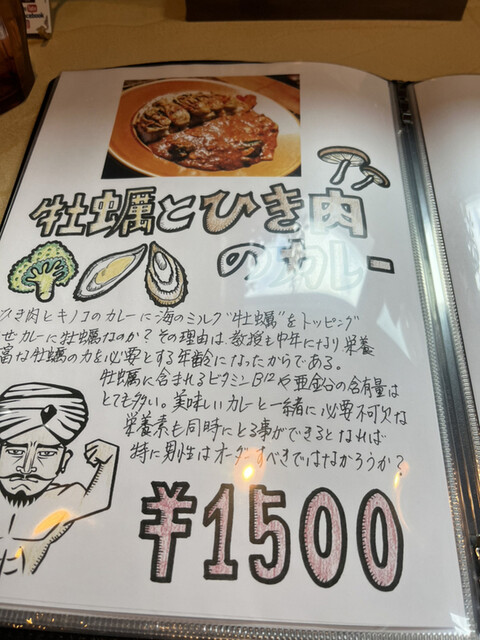 牡蠣とひき肉
のカレー
ひき肉とキノコのカレーに海のミルク"牡蠣"をトッピング
ぜカレーに牡蠣なのか?その理由は教授も中年になり栄養
富な牡蠣の力を必要とする年齢になったからである。
牡蠣に含まれるビタミンB12や亜鉛分の含有量は
とても多い。美味しいカレーと一緒に必要不可欠な
栄養素も同時にとる事ができるとなれば
特に男性はオーダーすべきではなかろうか?
¥1500